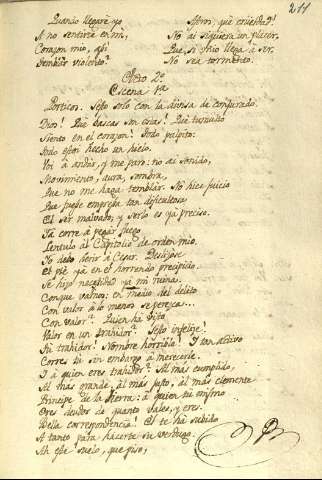 211
Quando llegaré yo
A no sentir en mi,
Corazon mio, asi
Temblar violento?
Astros, qué crueldad!
No ai siquiera un placer,
Que, si mio llega à ser,
No sea tormento.
Acto 2º
Escena 1ª
Porticos. Sesto solo con la divisa de conjurado.
Dios! Qué bascas son estas! Qué tumulto
Siento en el corazon! Todo palpito:
Todo estoi hecho un hielo.
Voi à andar, y me paro: no ai sonido,
Movimiento, aura, sombra,
Que no me haga temblar. No hice juicio
Que fuese empresa tan dificultosa
El ser malvado; y serlo es ya preciso.
Ya corre à pegar fuego
Lentulo al Capitolio de orden mio.
Yo debo herir à Cesar. Deslizóse
El pie ya en el horrendo precipicio.
Se hizo necesidad ya mi ruina.
Conque vamos: en medio del delito
Con valor à lo menos se perezca...
Con valor? Quien ha visto
Valor en un trahidor? Sesto infelize!
Tu trahidor! Nombre horrible! I tan activo
Corres tu sin embargo à merecerle.
I à quien eres trahidor? Al mas cumplido,
Al mas grande, al mas justo, al mas clemente
Principe de la tierra: à quien tu mismo
Eres deudor de quanto vales, y eres.
Bella correspondencia! El te ha subido
A tanto para hacerte su verdugo.
Ah ese suelo, que piso,